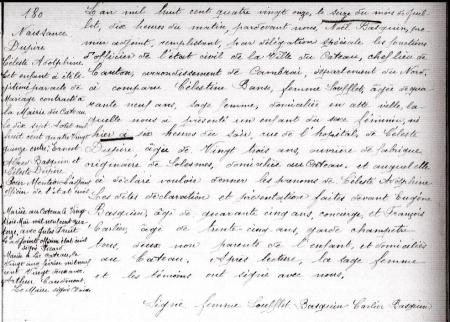 180
Naissance
Dupire
Céleste Adolphine
Cet enfant a été lé
gitimé par acte de
Mariage contracté à
la Mairie du Cateau
le dix sept Août mil
huit cent quatre vingt
quinze entre Ernest
Basquin et
Céleste Dupire
Pour Mention
de l'état civil
Mariée au Cateau le Vingt
mil neuf cent
avec Jules
L'adjoint
signé
Mariée à Le Cateau, le
vingt cinq
Arthur
Le Maire signé
L'an mil huit cent quatre vingt onze, le seize du mois de Juil-
let, dix heures du matin, pardevant nous, Noël Basquin, pre
mier adjoint, remplissant, par délégation spéciale les fonctions
d'officier de l'état civil de la Ville du Cateau, chef lieu de
Canton, arrondissement de Cambrai, département du Nord,
a comparu Célestine Bans, femme Soufflet, âgée de qua-
rante neuf ans, sage femme, domiciliée en cette ville, la-
quelle nous a présenté un enfant du sexe féminin, né
hier à six heures du soir, rue de l'hôpital, de Céleste
Dupire, âgée de Vingt trois ans, ouvrière de fabrique
originaire de Solesmes, domiciliée au Cateau, et auquel elle
a déclaré vouloir donner les prénoms de Céleste Adolphine
Les dites déclaration et présentation faites devant Eugène
Basquin, âgé de quarante cinq ans, concierge, et François
Cartier âgé de trente cinq ans, garde champêtre
tous deux non parents de l'enfant, et domiciliés
au Cateau. Après lecture, la sage femme
et les témoins ont signé avec nous.
Signé femme Soufflet Basquin Cartier Basquin